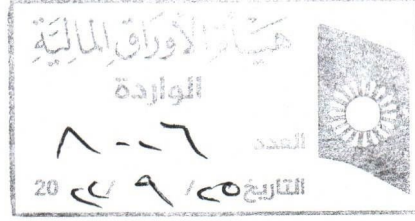 هيئة الأوراق المالية
الواردة
العدد ٨٠٠٦
التاريخ ٢٥ / ٩ / ٢٢ 20